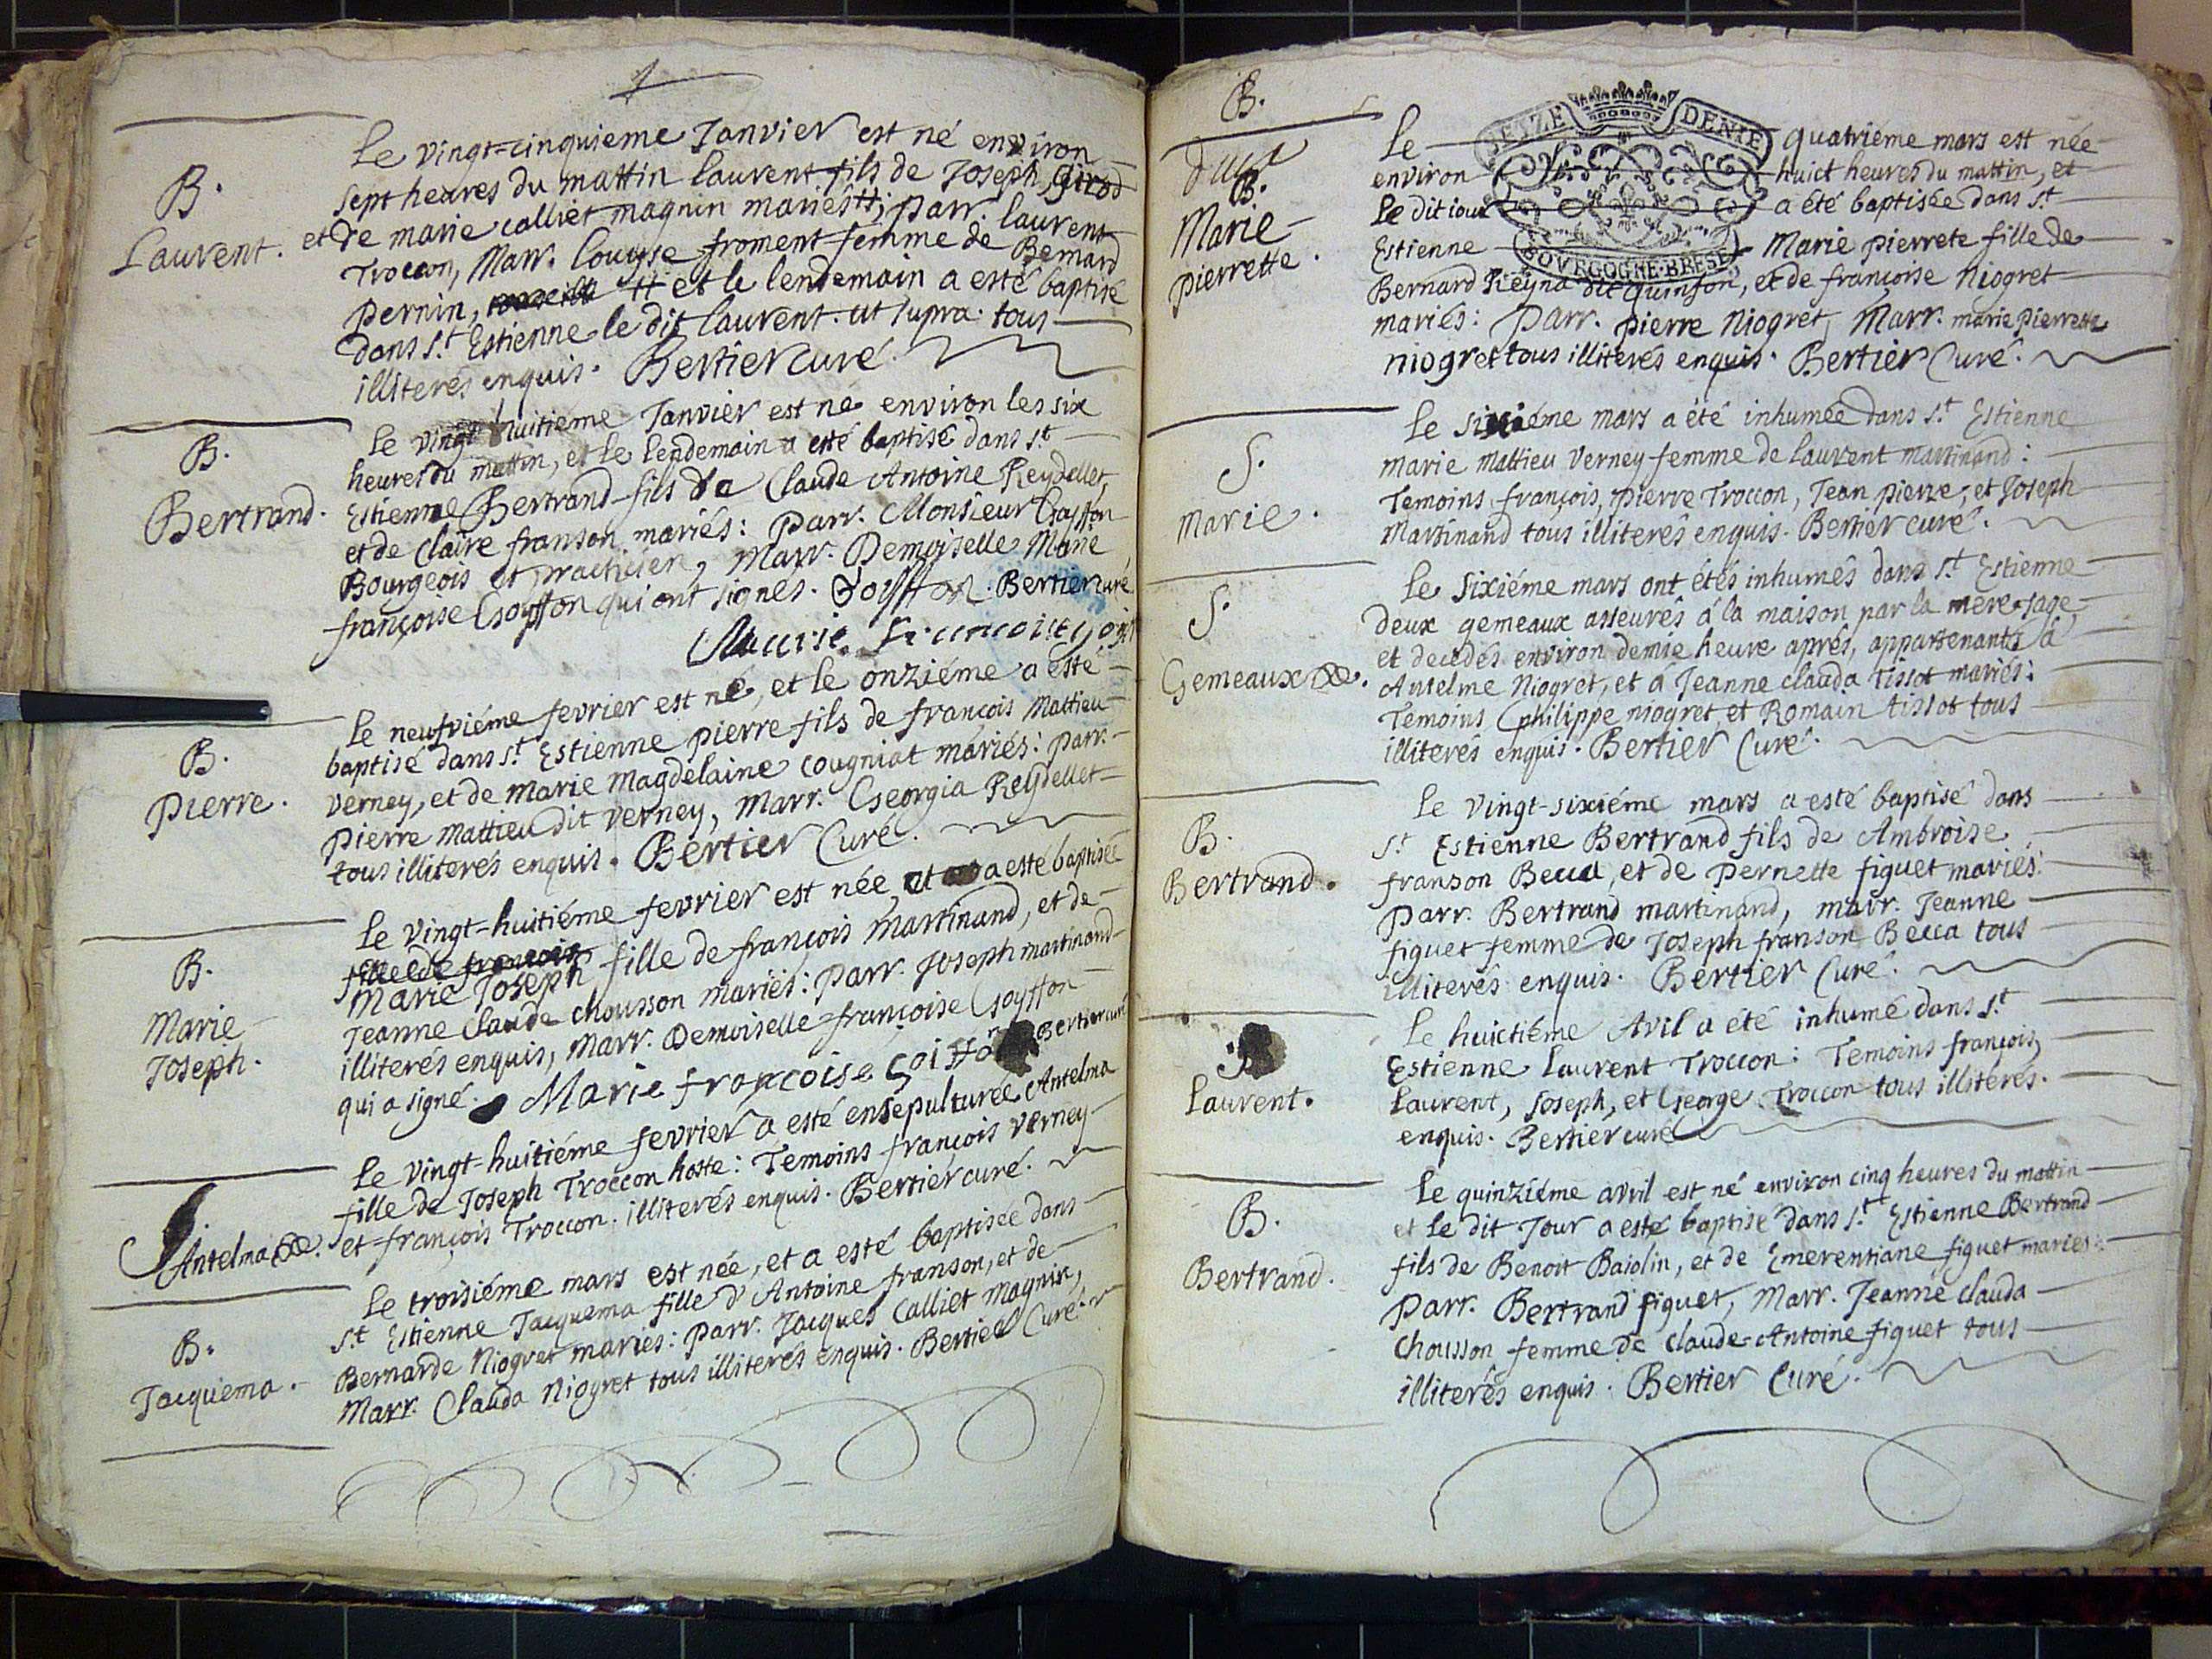 B.
Laurent.
Le vingt=cinquieme Janvier est né environ
sept heures du mattin laurent fils de Joseph Girod
et de marie calliet magnin mariês #; parr. laurent
Troccon, Marr. Louyse froment femme de Bernard
Pernin, # et le lendemain a esté baptisé
dans s.t Estienne le dit laurent. ut supra. tous
illiterés enquis. Bertier curé.
B.
Bertrand.
Le vingt huitiéme Janvier est né environ les six
heures du mattin, et le lendemain a esté baptisé dans s.t
Estienne Bertrand fils de Claude Antoine Reydellet,
et de Claire franson mariés: parr. Monsieur Goyffon
Bourgeois et practicien, Marr. Demoiselle Marie
françoise Goyffon qui ont signés. Goyffon. Bertier curé
Marie
B.
Pierre.
Le neufviéme fevrier est né, et le onziéme a esté
baptisé dans s.t Estienne pierre fils de françois Mattieu
verney, et de marie magdelaine cougniat mariés: parr.
pierre mattieu dit verney, marr. Georgia Reydellet
tous illiterés enquis. Bertier Curé.
B.
Marie
Joseph.
Le vingt=huitiéme fevrier est née, et a esté baptisée
fille de françois
Marie Joseph fille de françois martinand, et de
Jeanne Claude chousson mariés: parr. Joseph martinand
illiterés enquis, Marr. Demoiselle françoise Goyffon
qui a signé. Marie françoise Goiffon Bertier curé
S.
Antelma
Le vingt=huitiéme fevrier a esté ensepulturée Antelma
fille de Joseph Troccon hoste: Temoins françois verney
et françois Troccon. illiterés enquis. Bertier curé.
B.
Jacquema.
Le troisiéme mars est née, et a esté baptisée dans
s.t Estienne Jacquema fille d'Antoine franson, et de
Bernarde Niogret mariés: parr. Jacques Calliet Magnin,
Marr. Clauda Niogret tous illiterés enquis. Bertier Curé.
B.
B.
Marie
pierrette.
SEIZE DENIE
BOVRGOGNE·BRESE
Le quatriéme mars est née
environ huict heures du mattin, et
le dit iour a été baptisée dans s.t
Estienne Marie pierrete fille de
Bernard Reyna dit quinson, et de françoise Niogret
mariés: parr. pierre Niogret, Marr. marie pierrette
niogret tous illiterés enquis. Bertier Curé.
S.
Marie.
Le sixiéme mars a été inhumée dans s.t Estienne
marie mattieu Verney femme de laurent martinand:
Temoins françois, pierre Troccon, Jean pierre, et Joseph
Martinand tous illiterés enquis. Bertier curé.
S.
Gemeaux
Le sixiéme mars ont étés inhumés dans s.t Estienne
deux gemeaux asseurés á la maison par la mere sage,
et decedés environ demie heure aprés, appartenants á
Antelme Niogret, et á Jeanne clauda tissot mariés:
Temoins philippe niogret et Romain tissot tous
illiterés enquis. Bertier Curé.
B.
Bertrand.
Le vingt-sixiéme mars a esté baptisé dans
s.t Estienne Bertrand fils de Ambroise
franson Becca, et de pernette figuet mariés:
parr. Bertrand martinand, marr. Jeanne
figuet femme de Joseph franson Becca tous
illiterés enquis. Bertier Curé.
Laurent.
Le huictiéme Avil a été inhumé dans s.t
Estienne laurent Troccon: Temoins françois,
laurent, Joseph, et George Troccon tous illiterés.
enquis. Bertier curé
B.
Bertrand.
Le quinziéme avril est né environ cinq heures du mattin
et le dit Jour a esté baptisé dans s.t Estienne Bertrand
fils de Benoit Baiolin, et de Emerentiane figuet mariés:
parr. Bertrand figuet, Marr. Jeanne clauda
Chousson femme de claude-Antoine figuet tous
illiterés enquis. Bertier Curé.